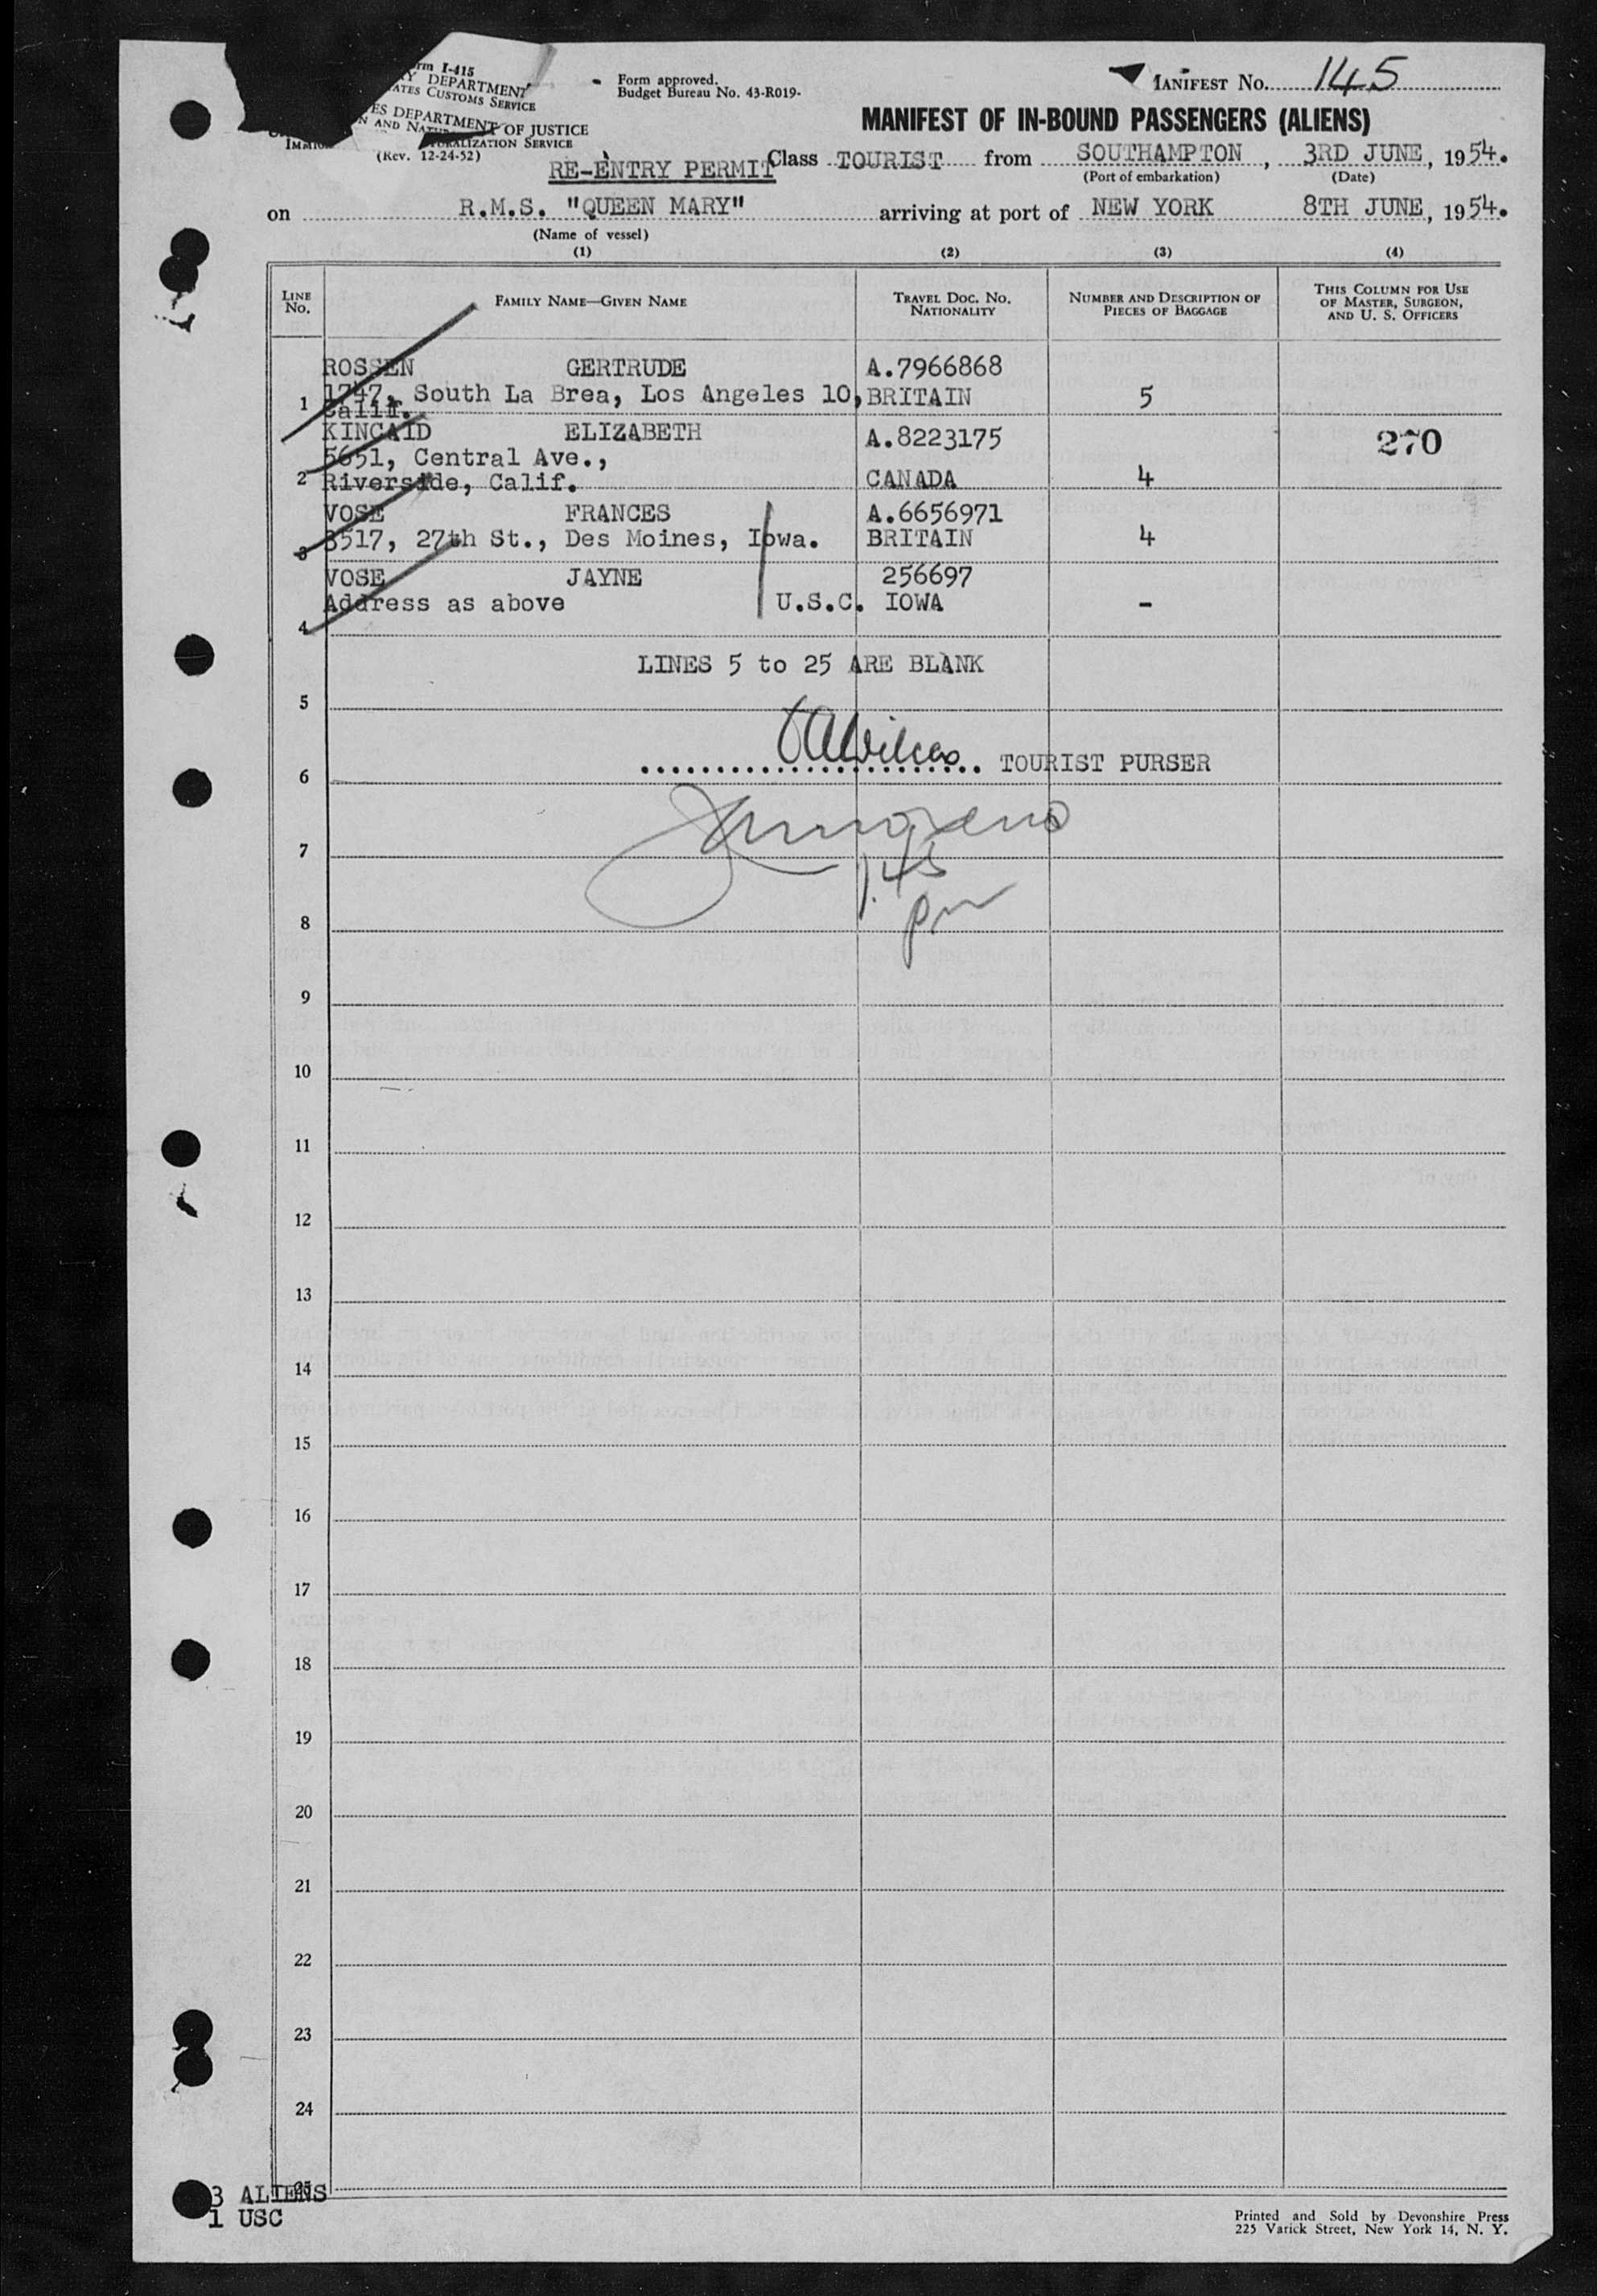 rm I-415
Y DEPARTMENT
ATES CUSTOMS SERVICE
ES DEPARTMENT OF JUSTICE
N AND NATURALIZATION SERVICE
(Rev. 12-24-52)
Form approved.
Budget Bureau No. 43-R019-
MANIFEST NO. 145
MANIFEST OF IN-BOUND PASSENGERS (ALIENS)
RE-ENTRY PERMIT Class TOURIST from SOUTHAMPTON, 3RD JUNE, 1954.
(Port of embarkation) (Date)
on R.M.S. "QUEEN MARY" arriving at port of NEW YORK 8TH JUNE, 1954.
(Name of vessel)
(1) (2) (3) (4)
LINE NO. FAMILY NAME—GIVEN NAME TRAVEL DOC. NO. NATIONALITY NUMBER AND DESCRIPTION OF PIECES OF BAGGAGE THIS COLUMN FOR USE OF MASTER, SURGEON, AND U. S. OFFICERS
ROSSEN GERTRUDE A.7966868
1 1747, South La Brea, Los Angeles 10, BRITAIN 5
Calif.
KINCAID ELIZABETH A.8223175 270
5651, Central Ave.,
2 Riverside, Calif. CANADA 4
VOSE FRANCES A.6656971
3 3517, 27th St., Des Moines, Iowa. BRITAIN 4
VOSE JAYNE 256697
Address as above U.S.C. IOWA -
4
LINES 5 to 25 ARE BLANK
5
TOURIST PURSER
6
7
1.45
pm
8
9
10
11
12
13
14
15
16
17
18
19
20
21
22
23
24
25
3 ALIENS
1 USC
Printed and Sold by Devonshire Press
225 Varick Street, New York 14, N. Y.